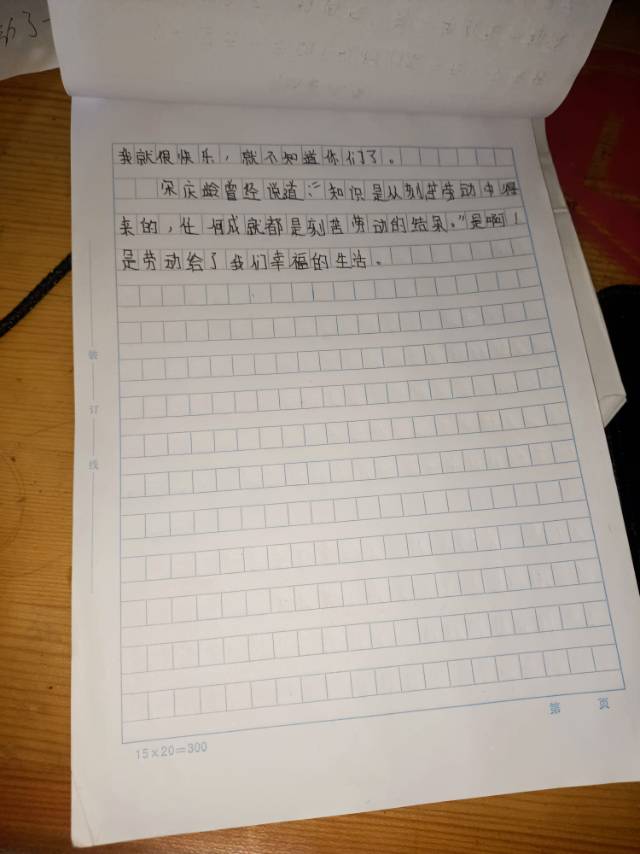 我就很快乐，就不知道你们了。
宋庆龄曾经说道：“知识是从刻苦劳动中得
来的，任何成就都是刻苦劳动的结果。”是啊！
是劳动给了我们幸福的生活。
装
订
线
第 页
15×20=300